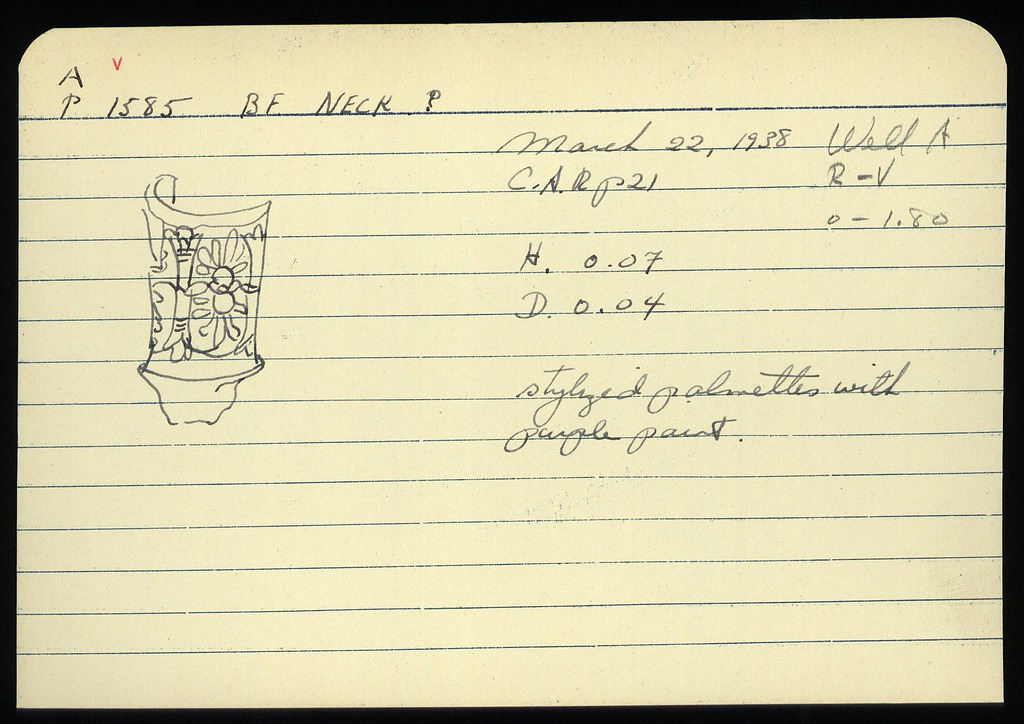 A v
P 1585 BF NECK ?
March 22, 1938 Well A
C.A.R p21 R-V
0-1.80
H. 0.07
D. 0.04
stylized palmettes with
purple paint.